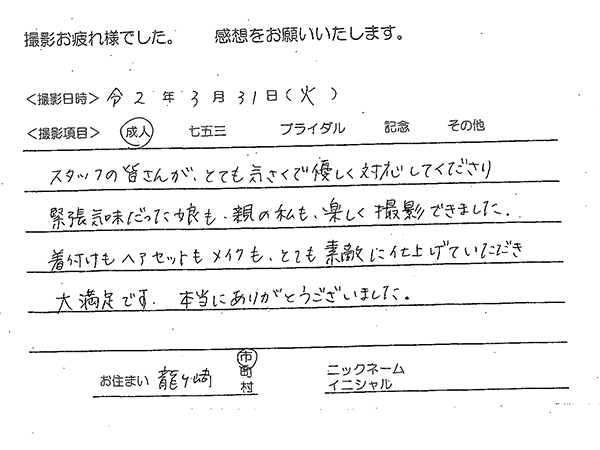 撮影お疲れ様でした。　感想をお願いいたします。
＜撮影日時＞ 令2年3月31日(火)
＜撮影項目＞ 成人　七五三　ブライダル　記念　その他
スタッフの皆さんが、とても気さくで優しく対応してくださり
緊張気味だった娘も、親の私も、楽しく撮影できました。
着付けもヘアセットもメイクも、とても素敵に仕上げていただき
大満足です。本当にありがとうございました。
お住まい 龍ヶ崎 市町村　ニックネーム イニシャル